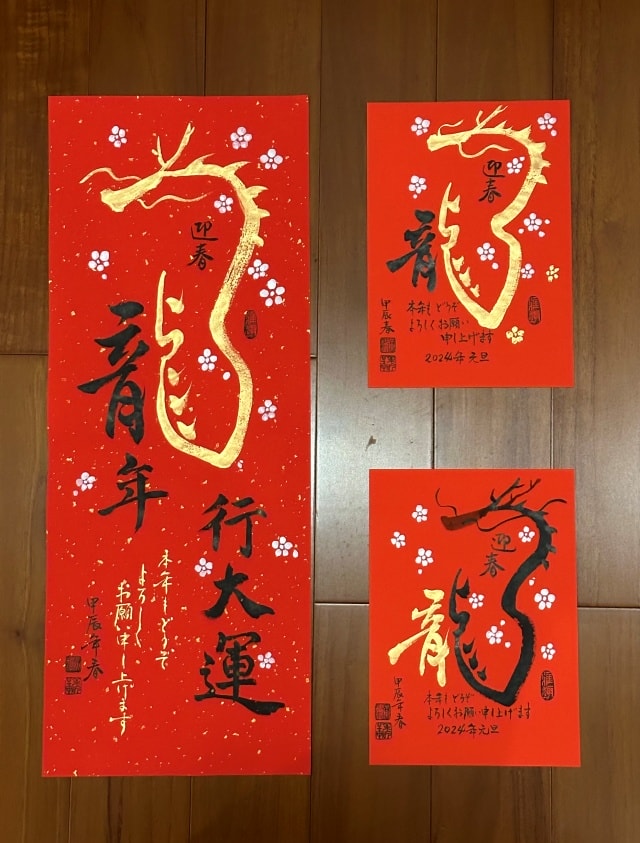 迎春
龍年
行大運
本年もどうぞ
よろしく
お願い申し上げます
甲辰年春
迎春
龍
本年もどうぞ
よろしくお願い
申し上げます
2024年元旦
甲辰春
迎春
龍
本年もどうぞ
よろしくお願い申し上げます
2024年元旦
甲辰年春